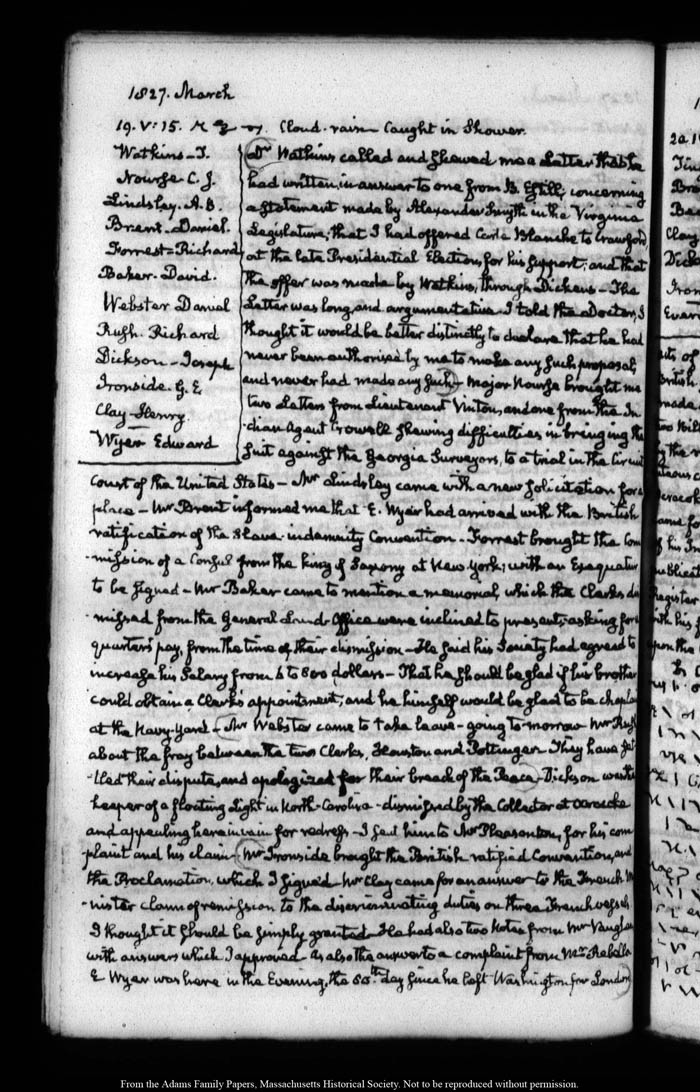 1827. March
19. V: 15. Cloud. rain Caught in Shower.
Watkins - T.
Nourse C. J.
Lindsley. A. B.
Brent. Daniel.
Forrest - Richard
Baker. David.
Webster Daniel
Rush. Richard
Dickson - Joseph
Ironside. G. E
Clay - Henry.
Wyer Edward
Dr Watkins called and shewed me a Letter that he
had written, in answer to one from B. Estill; concerning
a Statement made by Alexander Smyth in the Virginia
Legislature, that I had offered Carte Blanche to Crawford,
at the late Presidential Election, for his support; and that
the offer was made by Watkins, through Dickens - The
Letter was long, and argumentative. I told the Doctor, I
thought it would be better distinctly to declare that he had
never been authorised by me to make any such proposal,
and never had made any such - Major Nourse brought me
two Letters from Lieutenant Vinton, and one from the In-
dian Agent Crowell shewing difficulties in bringing the
suit against the Georgia Surveyors, to a trial in the Circuit
Court of the United States - Mr Lindsley came with a new solicitation for a
place - Mr Brent informed me that E. Wyer had arrived with the British
ratification of the Slave-indemnity Convention - Forrest brought the Com-
mission of a Consul from the king of Saxony at New York; with an Exequatur
to be signed - Mr Baker came to mention a memorial, which the Clerks dis-
missed from the General Land-Office were inclined to present, asking for a
quarters pay, from the time of their dismission - He said his Society had agreed to
increase his Salary from 6 to 800 dollars - That he should be glad if his brother
could obtain a Clerk's appointment; and he himself would be glad to be chaplain
at the Navy-Yard - Mr Webster came to take leave - going to-morrow Mr Rush
about the fray between the two Clerks, Houston and Pottinger. They have set-
tled their dispute, and apologized for their breach of the Peace - Dickson was the
keeper of a floating Light in North-Carolina - dismissed by the Collector at Ocracoke
and appealing here in vain for redress - I sent him to Mr Pleasonton, for his com-
plaint and his claim - Mr Ironside brought the British ratified Convention, and
the Proclamation, which I signed Mr Clay came for an answer to the French Mi-
nister claim of remission to the discriminating duties on three French vessels
I thought it should be simply granted. He had also two Notes from Mr Vaughan
with answers which I approved. As also the answer to a complaint from Mr Rebello
E Wyer was here in the Evening, the day since he left Washington for London
From the Adams Family Papers, Massachusetts Historical Society. Not to be reproduced without permission.